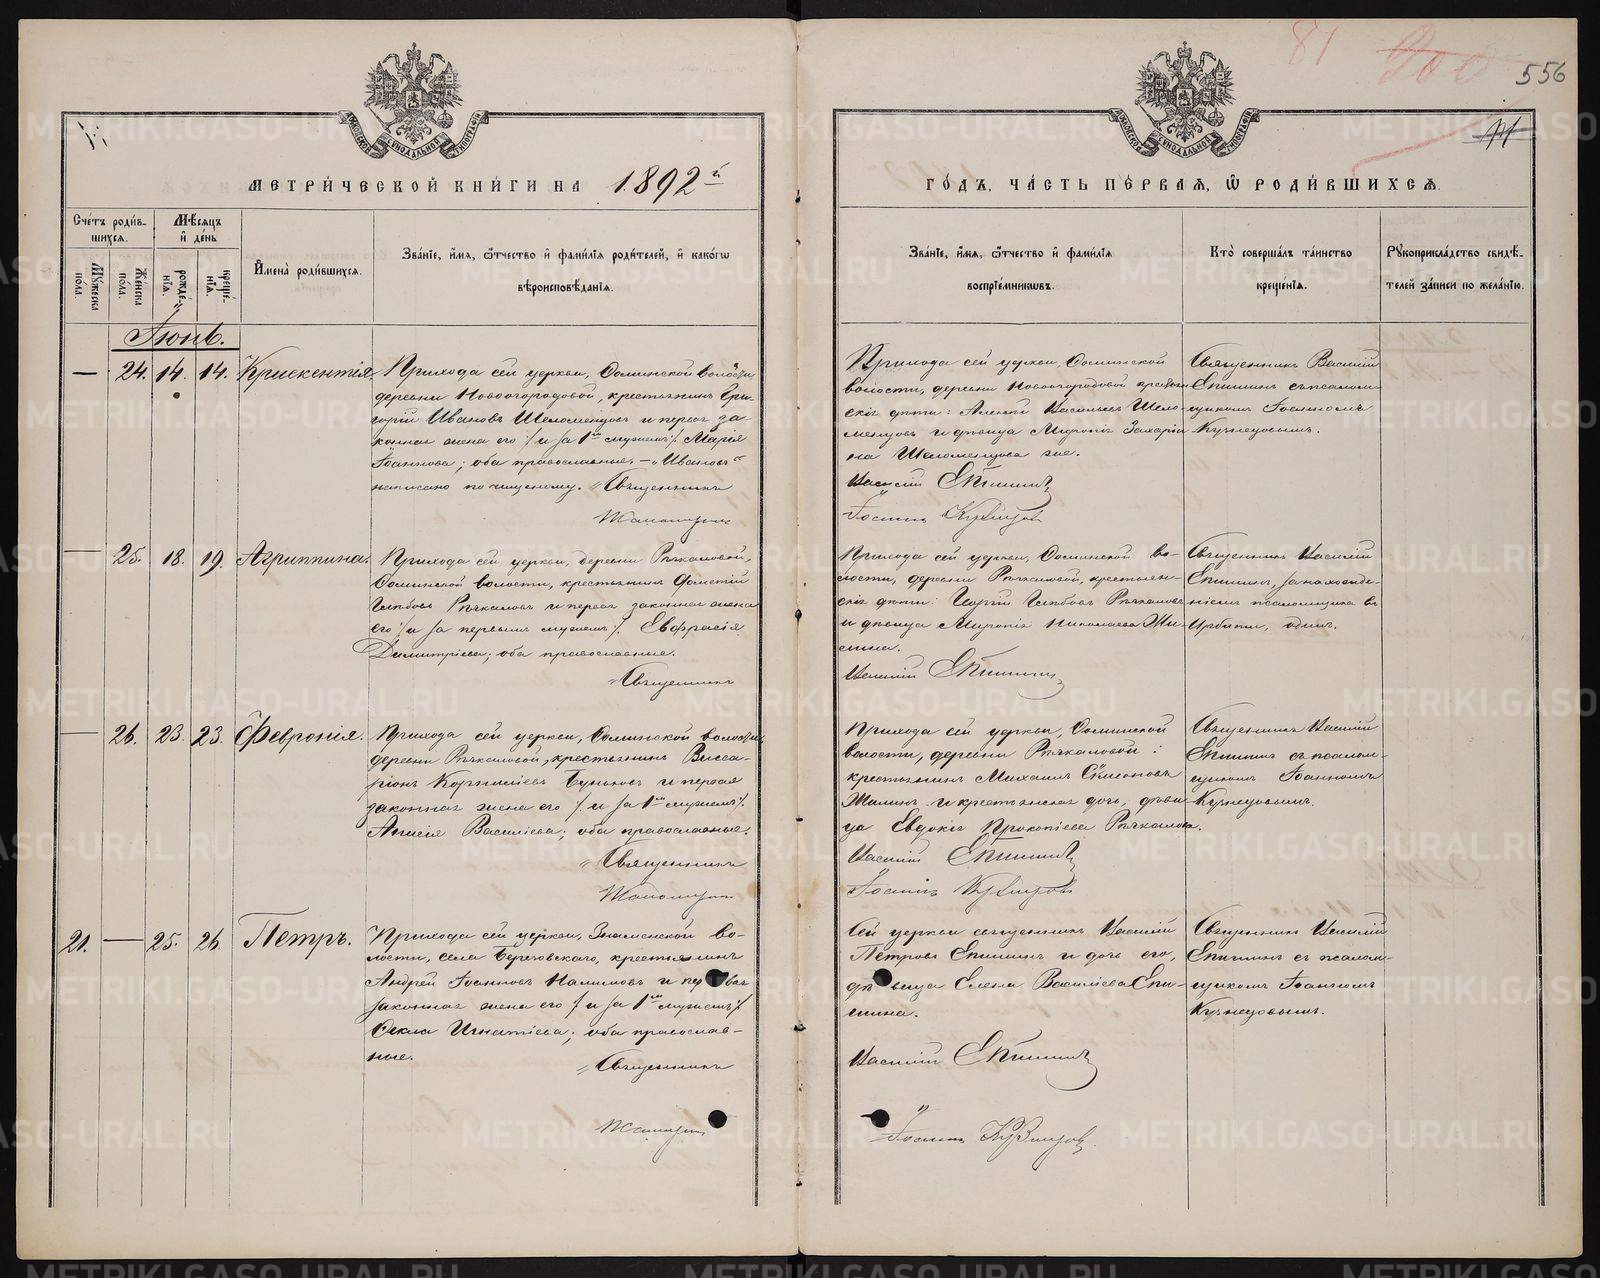 81
200
556
11
МЕТРИЧЕСКОЙ КНИГИ НА 1892й
ГОДЪ, ЧАСТЬ ПЕРВАЯ, Ѡ РОДИВШИХСЯ.
Счетъ родив-
шихся.
Мѣсяцъ
и день
Мужеска
пола.
Женска
пола.
рожде-
нія.
креще-
нія.
Имена родившихся.
Званіе, имя, ѿтчество и фамилія родителей, и какогѡ
вѣроисповѣданія.
Званіе, имя, ѿтчество и фамилія
воспріемникѡвъ.
Кто совершалъ таинство
крещенія.
Рукоприкладство свидѣ-
телей записи по желанію.
Іюнь.
— 24. 14. 14. Крискентія.
Прихода сей церкви, волости,
деревни Новогородовой, крестьянинъ Гри-
горій Ивановъ Шеломенцовъ и первая за-
конная жена его /и за 1мъ мужемъ/. Марія
Іоаннова; оба православные. — „Ивановъ"
написано по чищеному. Священникъ
Прихода сей церкви,
волости, деревни Новогородовой крестьян-
скіе дѣти: Алексій Васильевъ Шело-
менцовъ и дѣвица Миропія Захарии-
на Шеломенцова же.
Василій Епишинъ
Іоаннъ Кузнецовъ
Священникъ Василій
Епишинъ съ псалом-
щикомъ Іоанномъ
Кузнецовымъ.
— 25. 18. 19. Агриппина.
Прихода сей церкви, деревни Рѣчкаловой,
волости, крестьянинъ Фометій
Глѣбовъ Рѣчкаловъ и первая законная жена
его /и за первымъ мужемъ/. Евфрасія
Димитріева; оба православные.
Священникъ
Прихода сей церкви, во-
лости, деревни Рѣчкаловой, крестьян-
скіе дѣти: Георгій Глѣбовъ Рѣчкаловъ
и дѣвица Миропія Николаева Жи-
лина.
Василій Епишинъ
Священникъ Василій
Епишинъ, за нахожде-
ніемъ псаломщика въ
Ирбити, одинъ.
— 26. 23. 23. Февронія.
Прихода сей церкви, волости,
деревни Рѣчкаловой, крестьянинъ Висса-
ріонъ Корниліевъ Буньковъ и первая
законная жена его /и за 1мъ мужемъ/.
Анисія Василіева; оба православные.
Священникъ
Прихода сей церкви,
волости, деревни Рѣчкаловой:
крестьянинъ Михаилъ Симеоновъ
Жилинъ и крестьянская дочь, дѣви-
ца Евдокія Прокопіева Рѣчкалова.
Василій Епишинъ
Іоаннъ Кузнецовъ
Священникъ Василій
Епишинъ съ псалом-
щикомъ Іоанномъ
Кузнецовымъ.
21. — 25. 26. Петръ.
Прихода сей церкви, Знаменской во-
лости, села Береговскаго, крестьянинъ
Андрей Іоанновъ Налимовъ и первая
законная жена его /и за 1мъ мужемъ/
Фекла Игнатіева; оба православ-
ные.
Священникъ
Сей церкви священникъ Василій
Петровъ Епишинъ и дочь его,
дѣвица Елена Василіева Епи-
шина.
Василій Епишинъ
Іоаннъ Кузнецовъ
Священникъ Василій
Епишинъ съ псалом-
щикомъ Іоанномъ
Кузнецовымъ.
METRIKI.GASO-URAL.RU